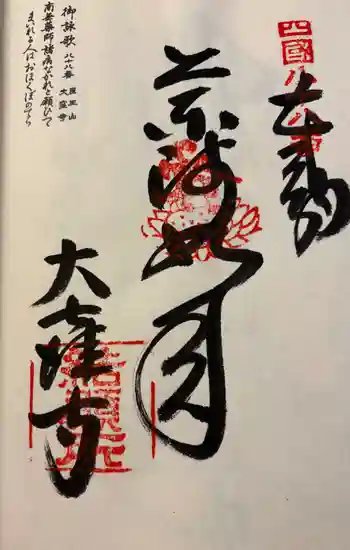 四國八十八番
奉納
薬師如来
大窪寺
結願所
御詠歌 八十八番 医王山 大窪寺
南無薬師諸病なかれと願ひて
まいれる人はおほくぼのてら